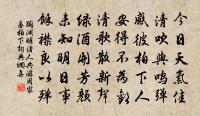 今日天氣佳
清吹與鳴彈
感彼柏下人
安得不為歡
清歌散新聲
綠酒開芳顏
未知明日事
餘襟良以殫
陶淵明諸人共遊周家
墓柏下詞